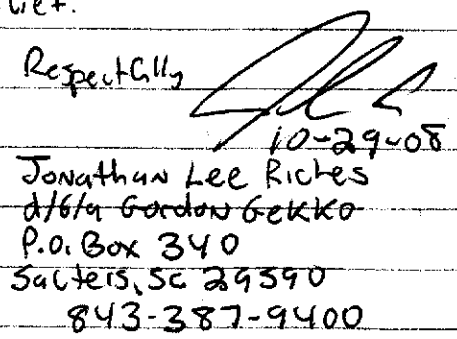 lief.
Respectfully
10-29-08
Jonathan Lee Riches
d/b/a Gordon Gekko
P.O. Box 340
Salters, SC 29590
843-387-9400